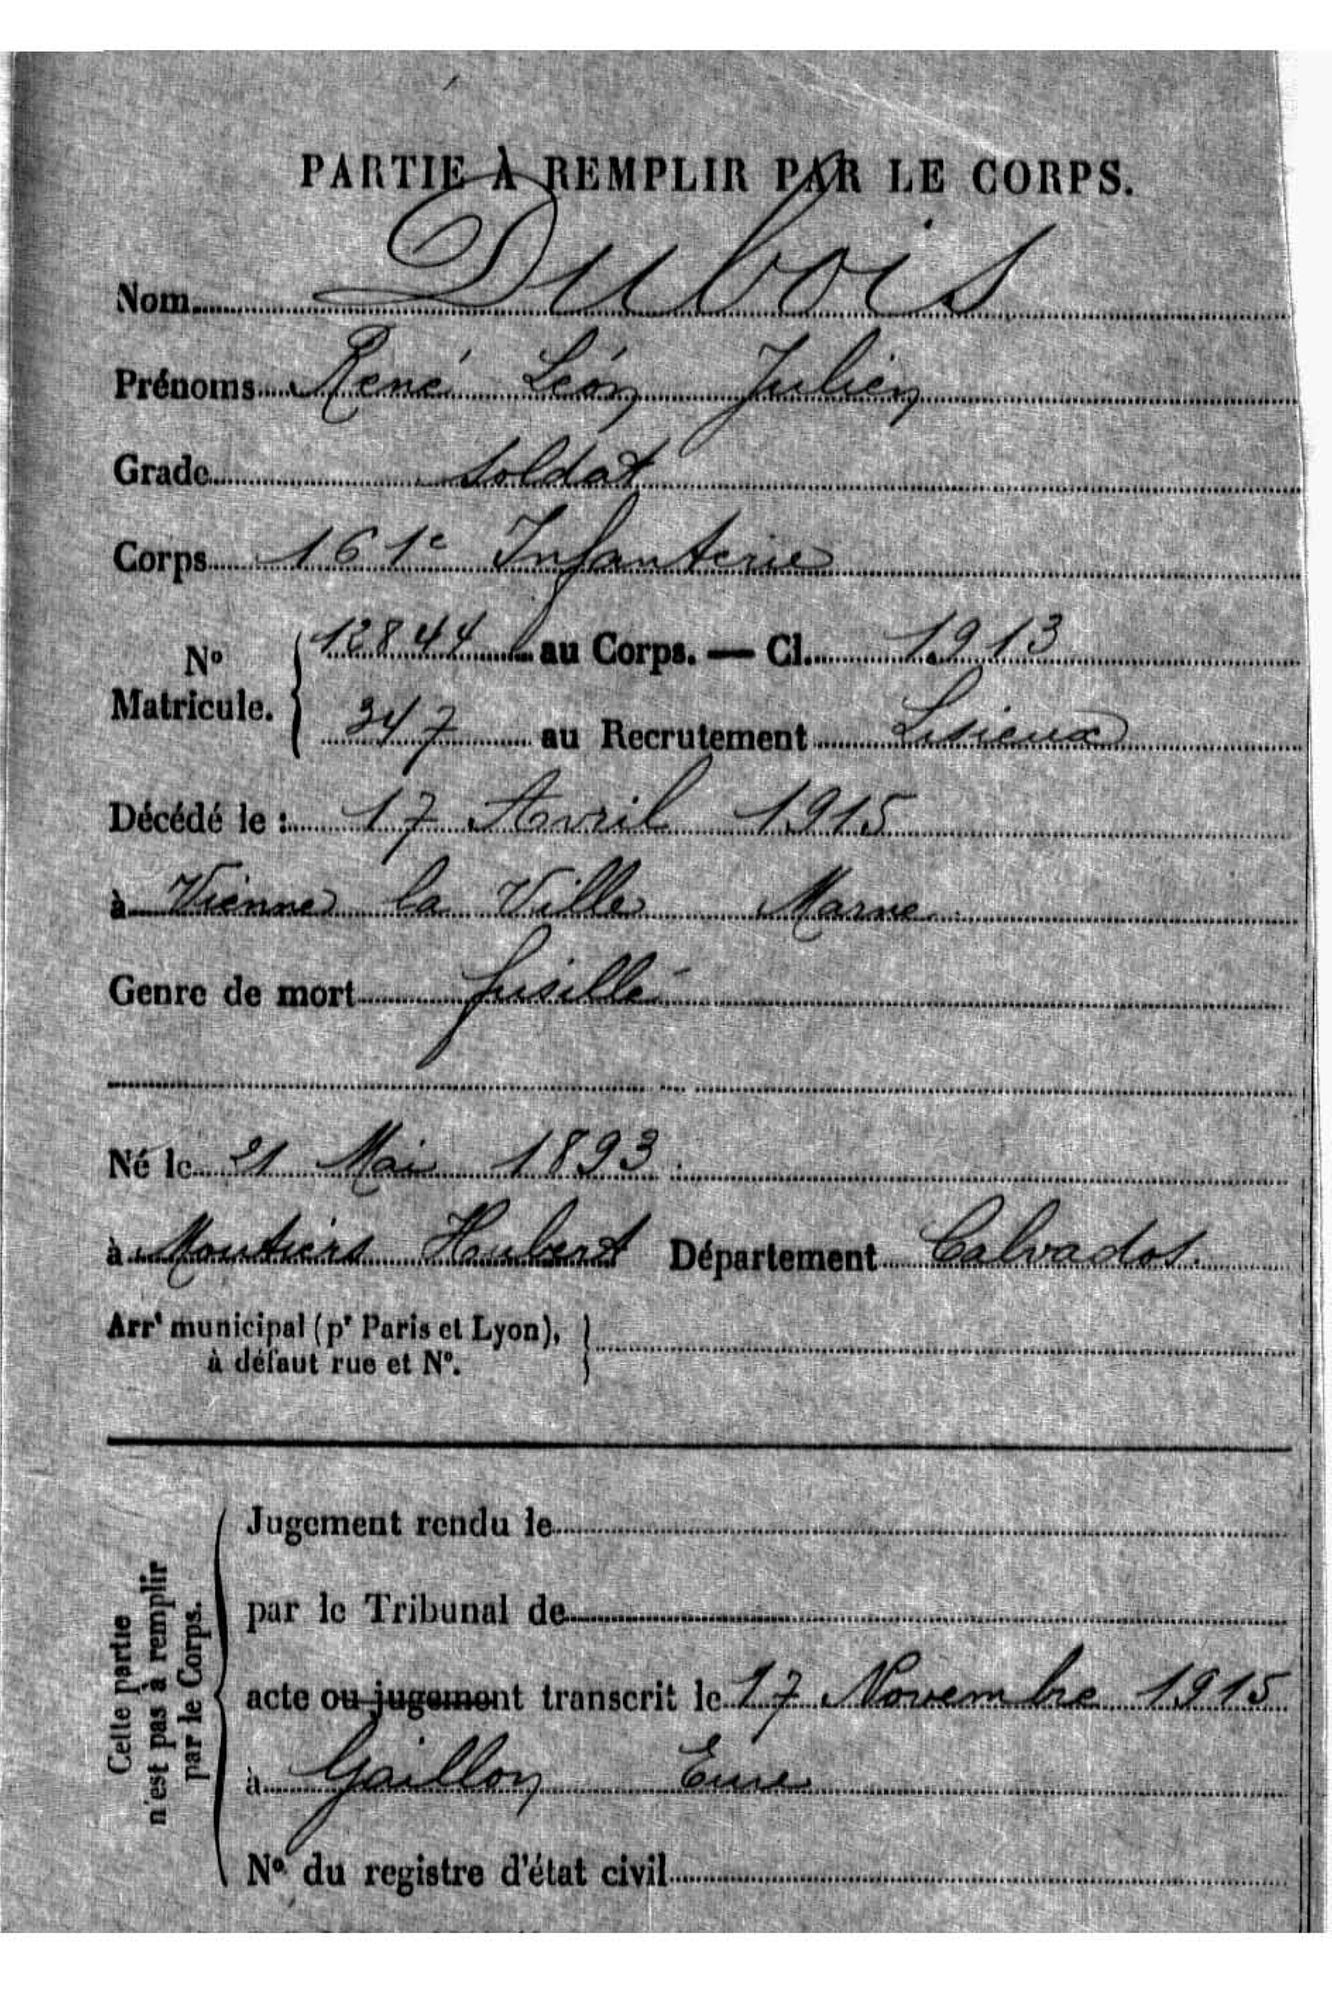 PARTIE À REMPLIR PAR LE CORPS.
Nom Dubois
Prénoms René Léon Julien
Grade Soldat
Corps 161e Infanterie
No Matricule. { 12844 au Corps. — Cl. 1913
347 au Recrutement Lisieux
Décédé le : 17 Avril 1915
à Vienne la Ville Marne
Genre de mort fusillé
Né le 21 Mai 1893
à Moutiers Hubert Département Calvados.
Arrt municipal (pr Paris et Lyon), }
à défaut rue et No.
Cette partie
n'est pas à remplir
par le Corps.
Jugement rendu le
par le Tribunal de
acte ou jugement transcrit le 17 Novembre 1915
à Gaillon Eure
No du registre d'état civil